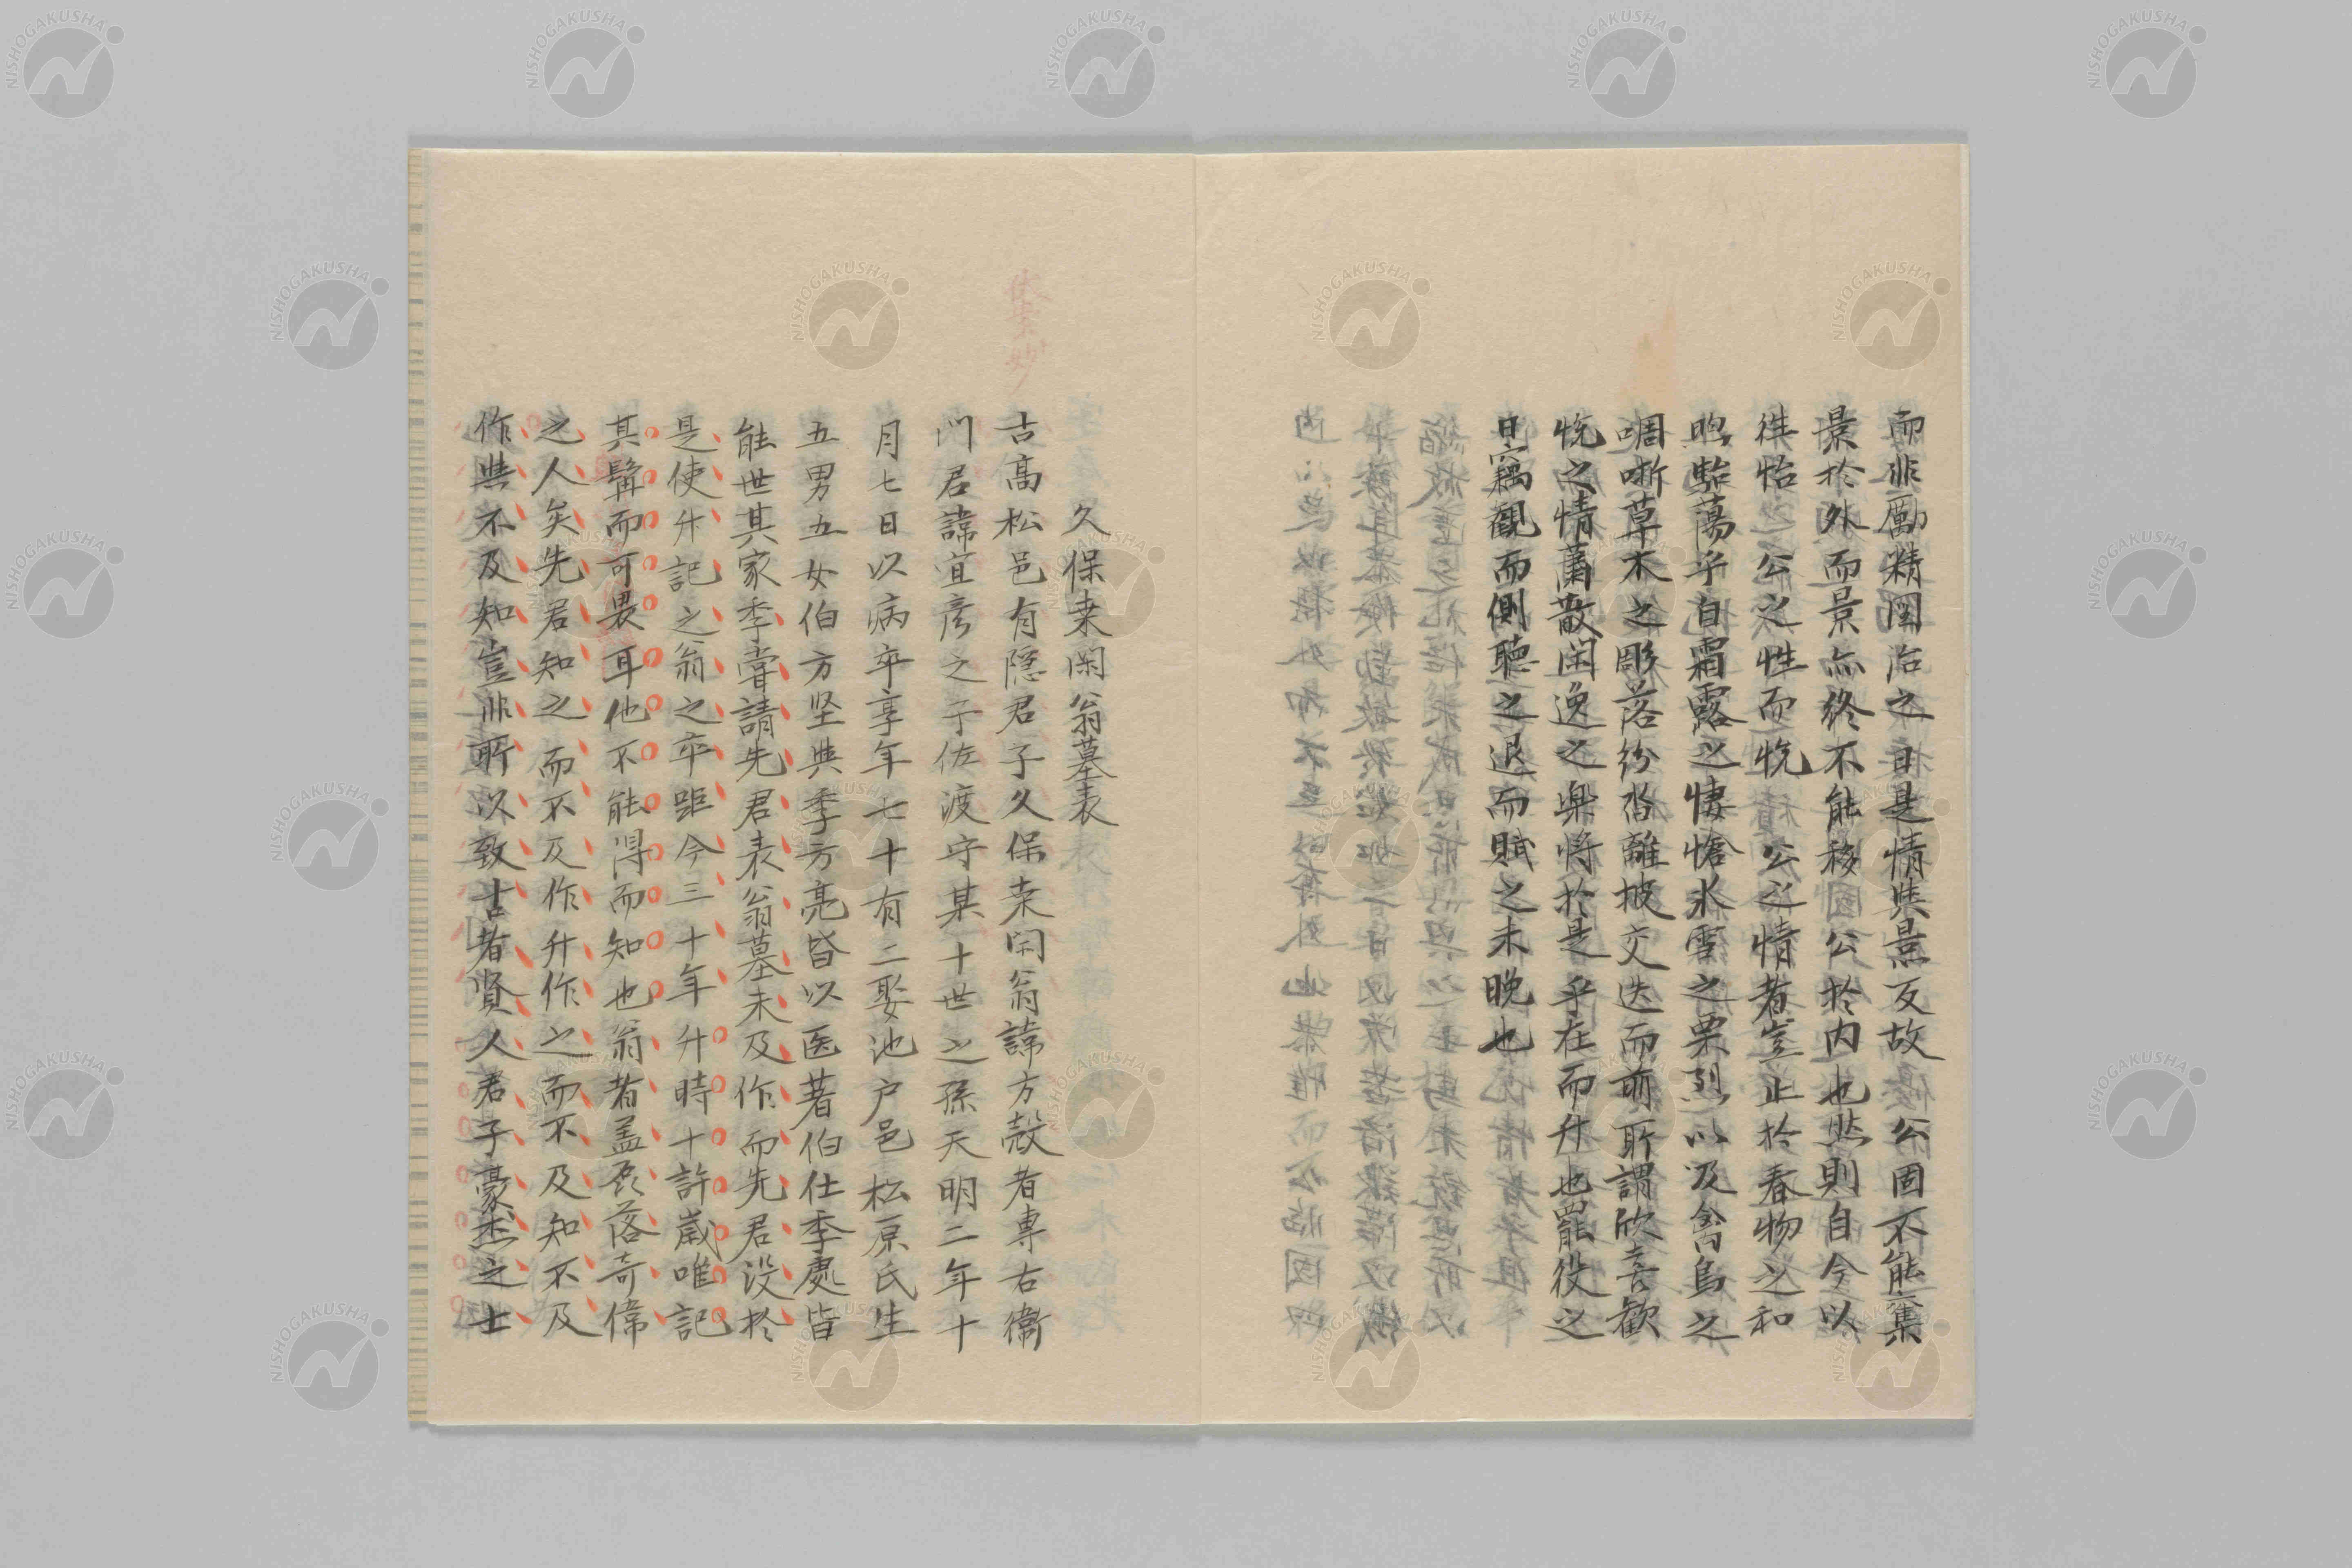 而非勵精図治之日是情与景反故公固不能集
景於外而景亦終不能移公於内也然則自今以
往怡公之性而悦公之情者豈止於春物之和
煦駘蕩乎自霜露之悽愴氷雪之栗烈以及禽鳥之
啁哳草木之彫落紛沓離披交迭而萌所謂欣喜歓
悦之情蕭散閑逸之楽将於是乎在而升也罷役之
日竊観而側聴之退而賦之未晩也
久保桒閑翁墓表
古高松邑有隠君子久保桒閑翁諱方殻者専右衛
門君諱宜彦之子佐渡守某十世之孫天明二年十
月七日以病卒享年七十有二娶池戸邑松原氏生
五男五女伯方堅与季方亮皆以医著伯仕季處皆
能世其家季嘗請先君表翁墓未及作而先君没於
是使升記之翁之卒距今三十年升時十許歳唯記
其髯而可畏耳他不能得而知也翁者盖磊落奇偉
之人矣先君知之而不及作升作之而不及知不及
作与不及知豈非所以致古者賢人君子豪杰之士